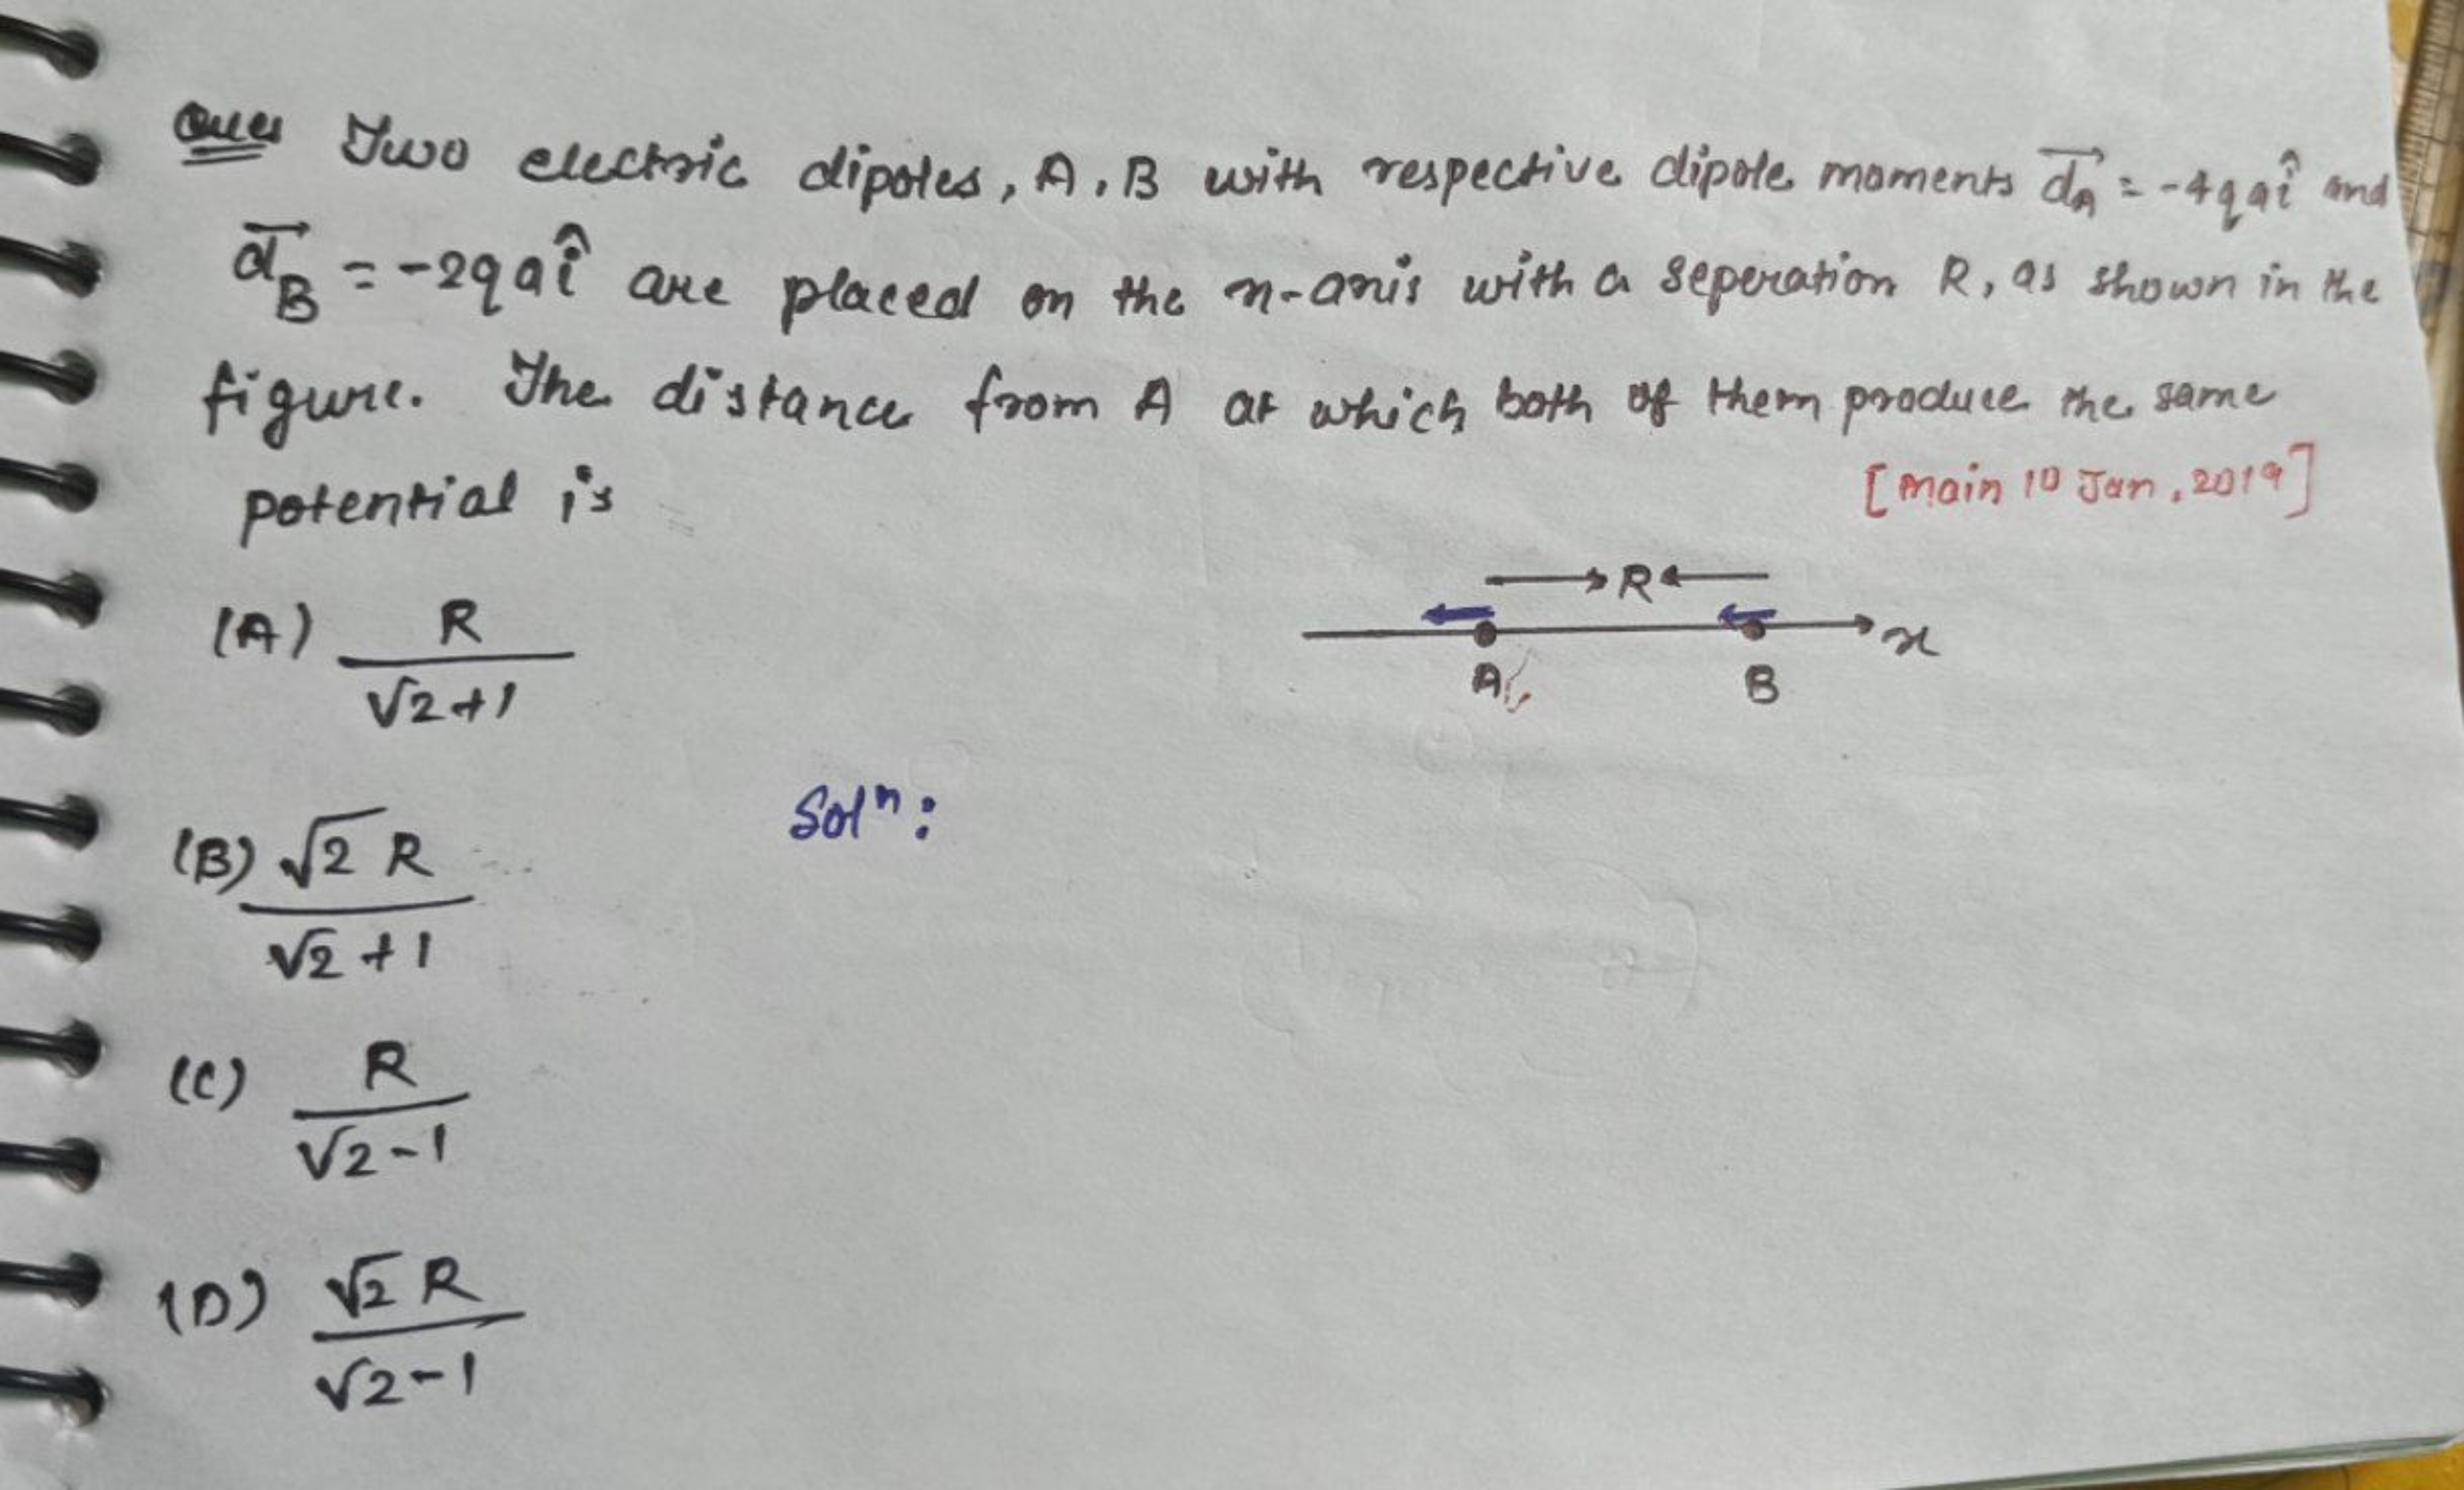 Ques Two electric dipoles, A, B with respective dipole moments \vec{d_A} = -4qa\hat{i} and
\vec{d_B} = -2qa\hat{i} are placed on the x-axis with a seperation R, as shown in the
figure. The distance from A at which both of them produce the same
potential is
[Main 10 Jan, 2019]
→ R ←
A B x
(A) R/(√2+1)
Solⁿ:
(B) √2 R/(√2+1)
(C) R/(√2-1)
(D) √2 R/(√2-1)